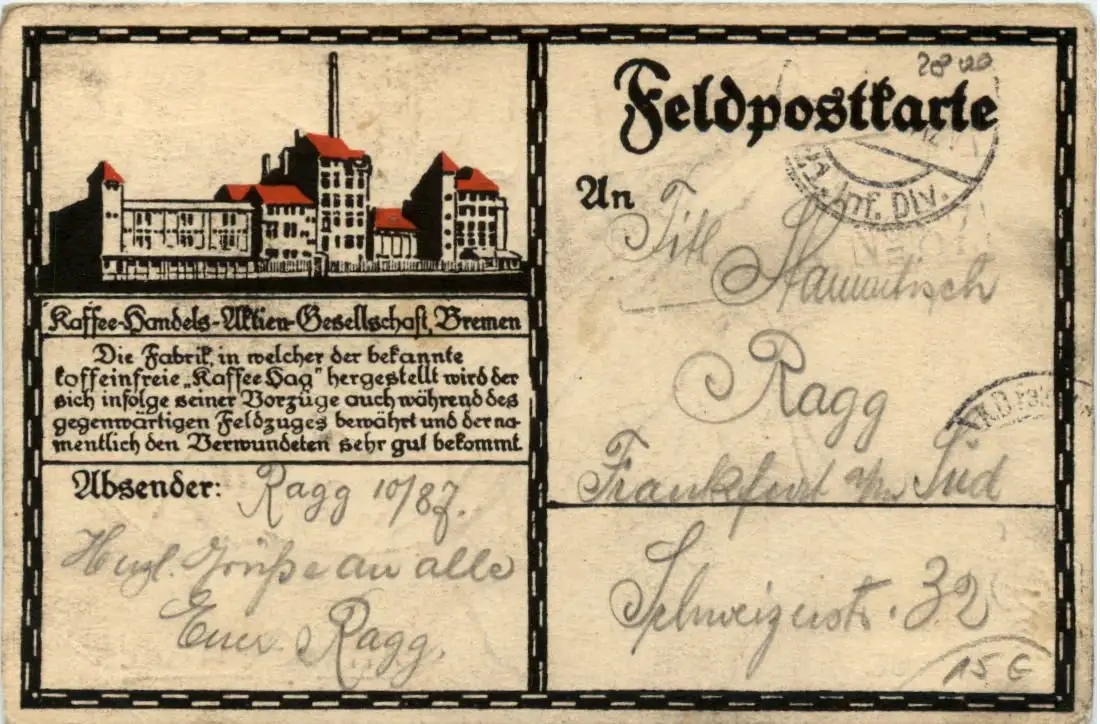 Kaffee-Handels-Aktien-Gesellschaft, Bremen
Die Fabrik, in welcher der bekannte
koffeinfreie „Kaffee Hag" hergestellt wird der
sich infolge seiner Vorzüge auch während des
gegenwärtigen Feldzuges bewährt und der na-
mentlich den Verwundeten sehr gut bekommt
Absender: Ragg 10/87.
Herzl. Grüße an alle
Euer Ragg.
Feldpostkarte
Inf. Div.
An Titl Stammtisch
Ragg
Frankfurt a/m Süd
Schweizerstr. 32
15 G